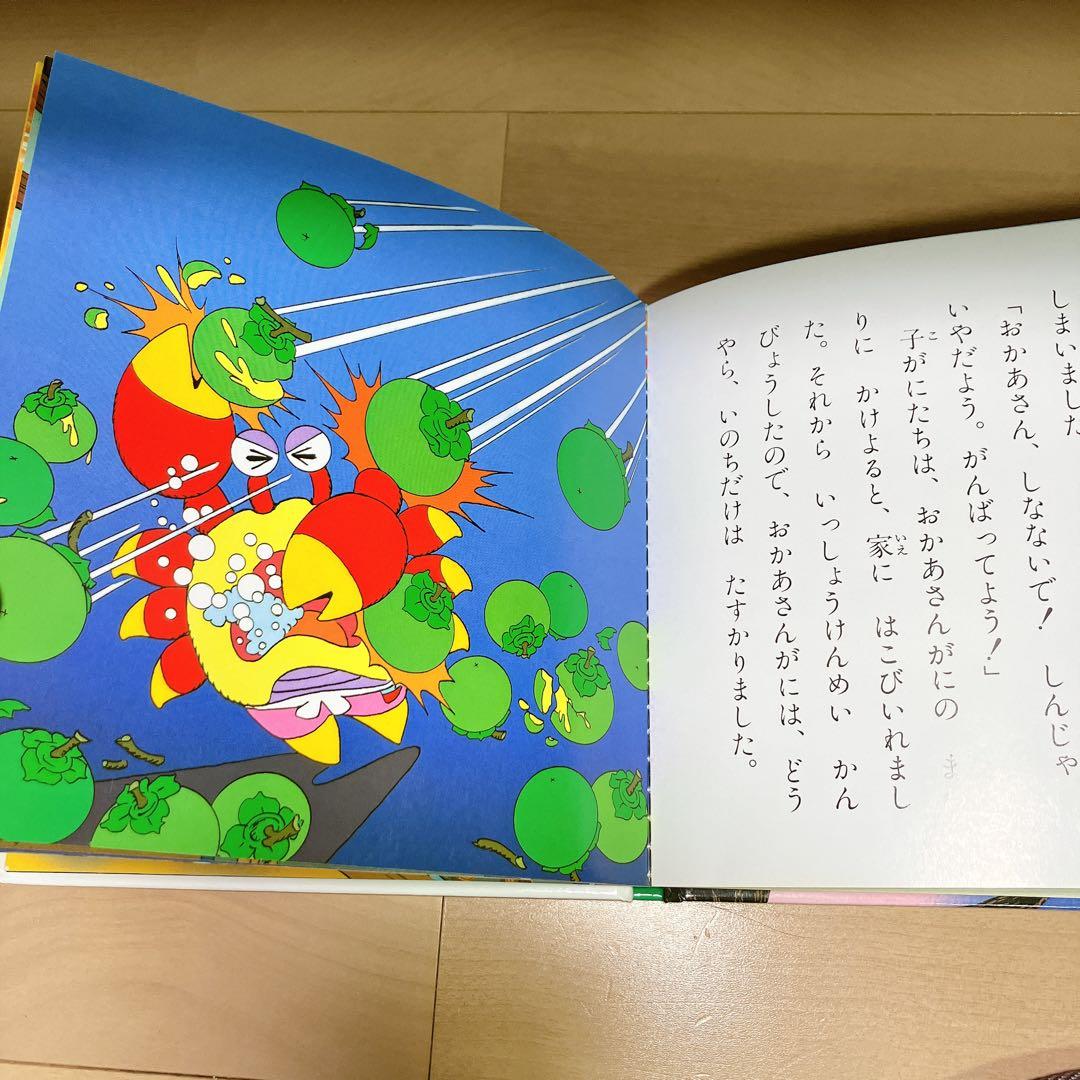 しまいました
「おかあさん、しなないで！　しんじゃ
いやだよう。がんばってよう！」
子がにたちは、おかあさんがにの　ま
りに　かけよると、家に　はこびいれまし
た。それから　いっしょうけんめい　かん
びょうしたので、おかあさんがには、どう
やら、いのちだけは　たすかりました。